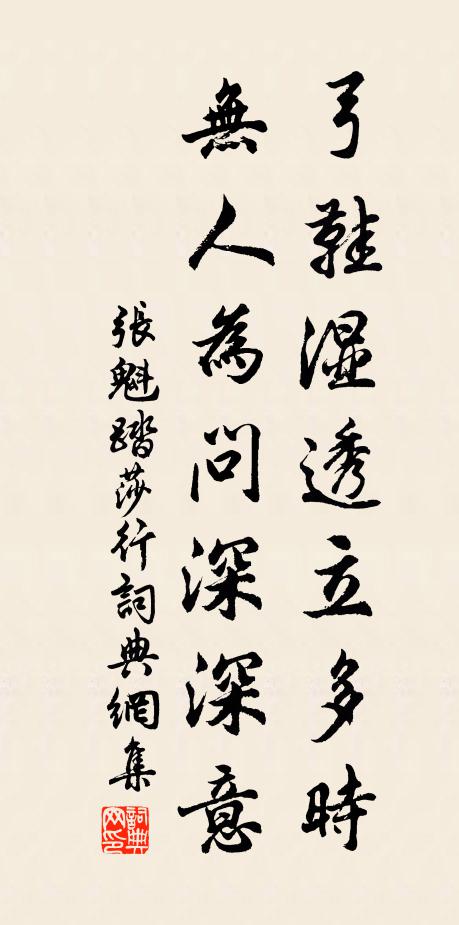 弓鞋湿透立多時
無人為問深深意
張魁踏莎行詞典網集
詞典網印